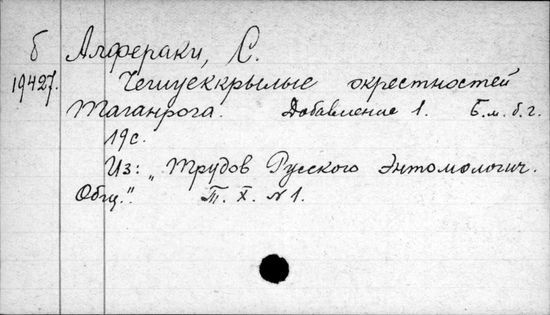 б Алфераки, С.
19427. Чешуекрылые окрестностей
Таганрога. Добавление 1. Б. м. б. г.
19 с.
Из: „Трудов Русского Энтомологич.
Общ.". Т. X. №1.